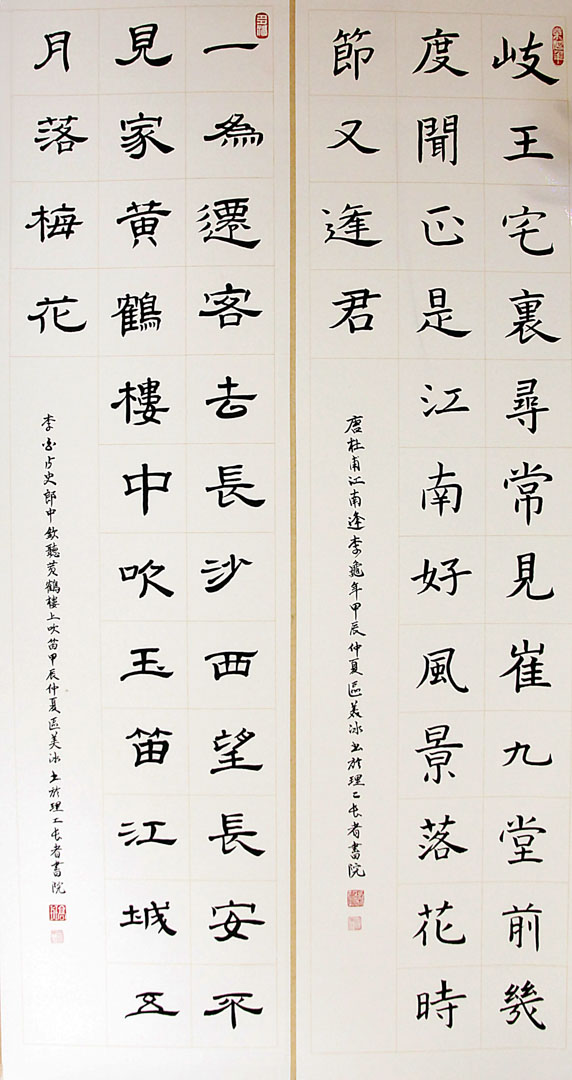 岐王宅裏尋常見崔九堂前幾
度聞正是江南好風景落花時
節又逢君
唐杜甫江南逢李龜年甲辰仲夏區美冰書於理工長者書院
一為遷客去長沙西望長安不
見家黃鶴樓中吹玉笛江城五
月落梅花
李白与史郎中欽聽黃鶴樓上吹笛甲辰仲夏區美冰書於理工長者書院